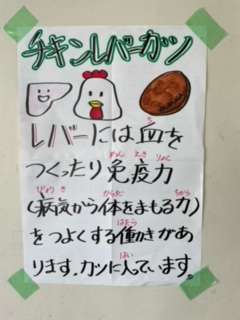 チキンレバーカツ
レバーには血を
つくったり免疫力
(病気から体をまもる力)
をつよくする働きがあ
ります。カツに入ています。